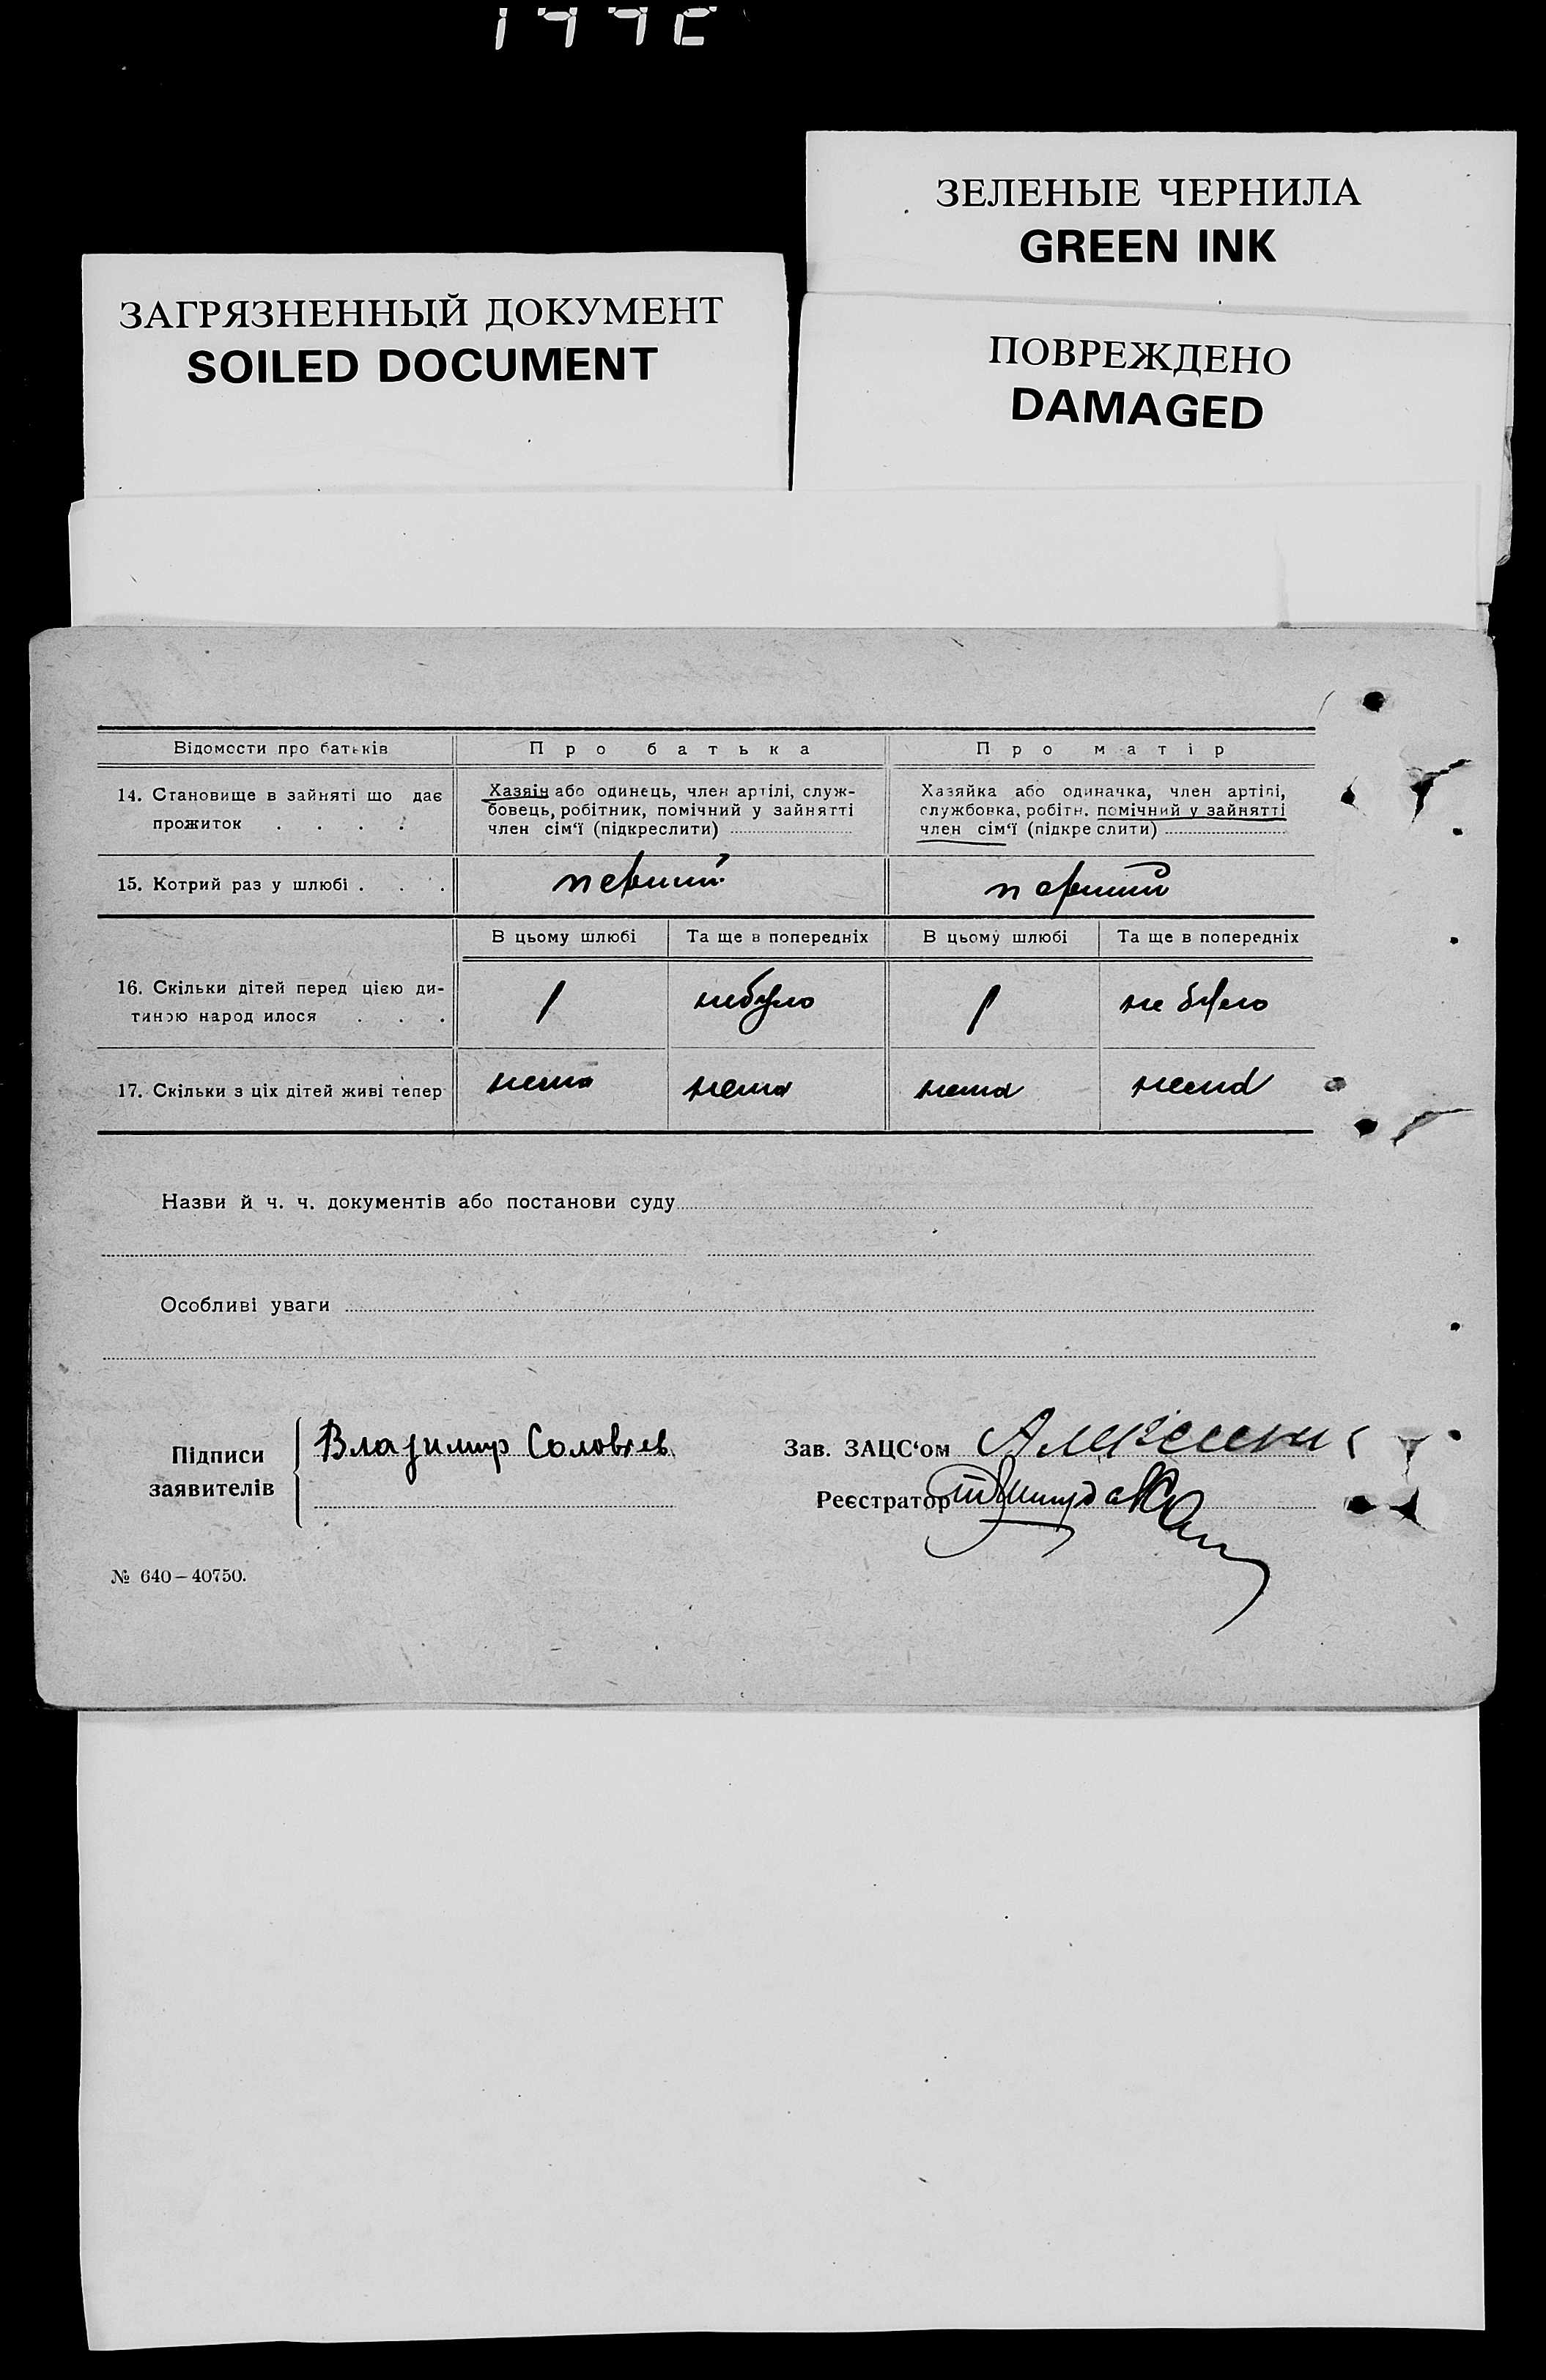 ЗЕЛЕНЫЕ ЧЕРНИЛА
GREEN INK
ЗАГРЯЗНЕННЫЙ ДОКУМЕНТ
SOILED DOCUMENT
ПОВРЕЖДЕНО
DAMAGED
Відомости про батьків Про батька Про матір
14. Становище в зайняті що дає прожиток . . . .
Хазяїн або одинець, член артілі, служ-
бовець, робітник, помічний у зайнятті
член сім'ї (підкреслити)
Хазяйка або одиначка, член артілі,
службовка, робітн. помічний у зайнятті
член сім'ї (підкреслити)
15. Котрий раз у шлюбі . . . перший перший
В цьому шлюбі Та ще в попередніх В цьому шлюбі Та ще в попередніх
16. Скільки дітей перед цією ди-
тиною народилося . . . 1 небуло 1 не було
17. Скільки з ціх дітей живі тепер нема нема нема нема
Назви й ч. ч. документів або постанови суду
Особливі уваги
Підписи
заявителів
Владимир Соловьев
Зав. ЗАЦС'ом
Реєстратор
№ 640—40750.